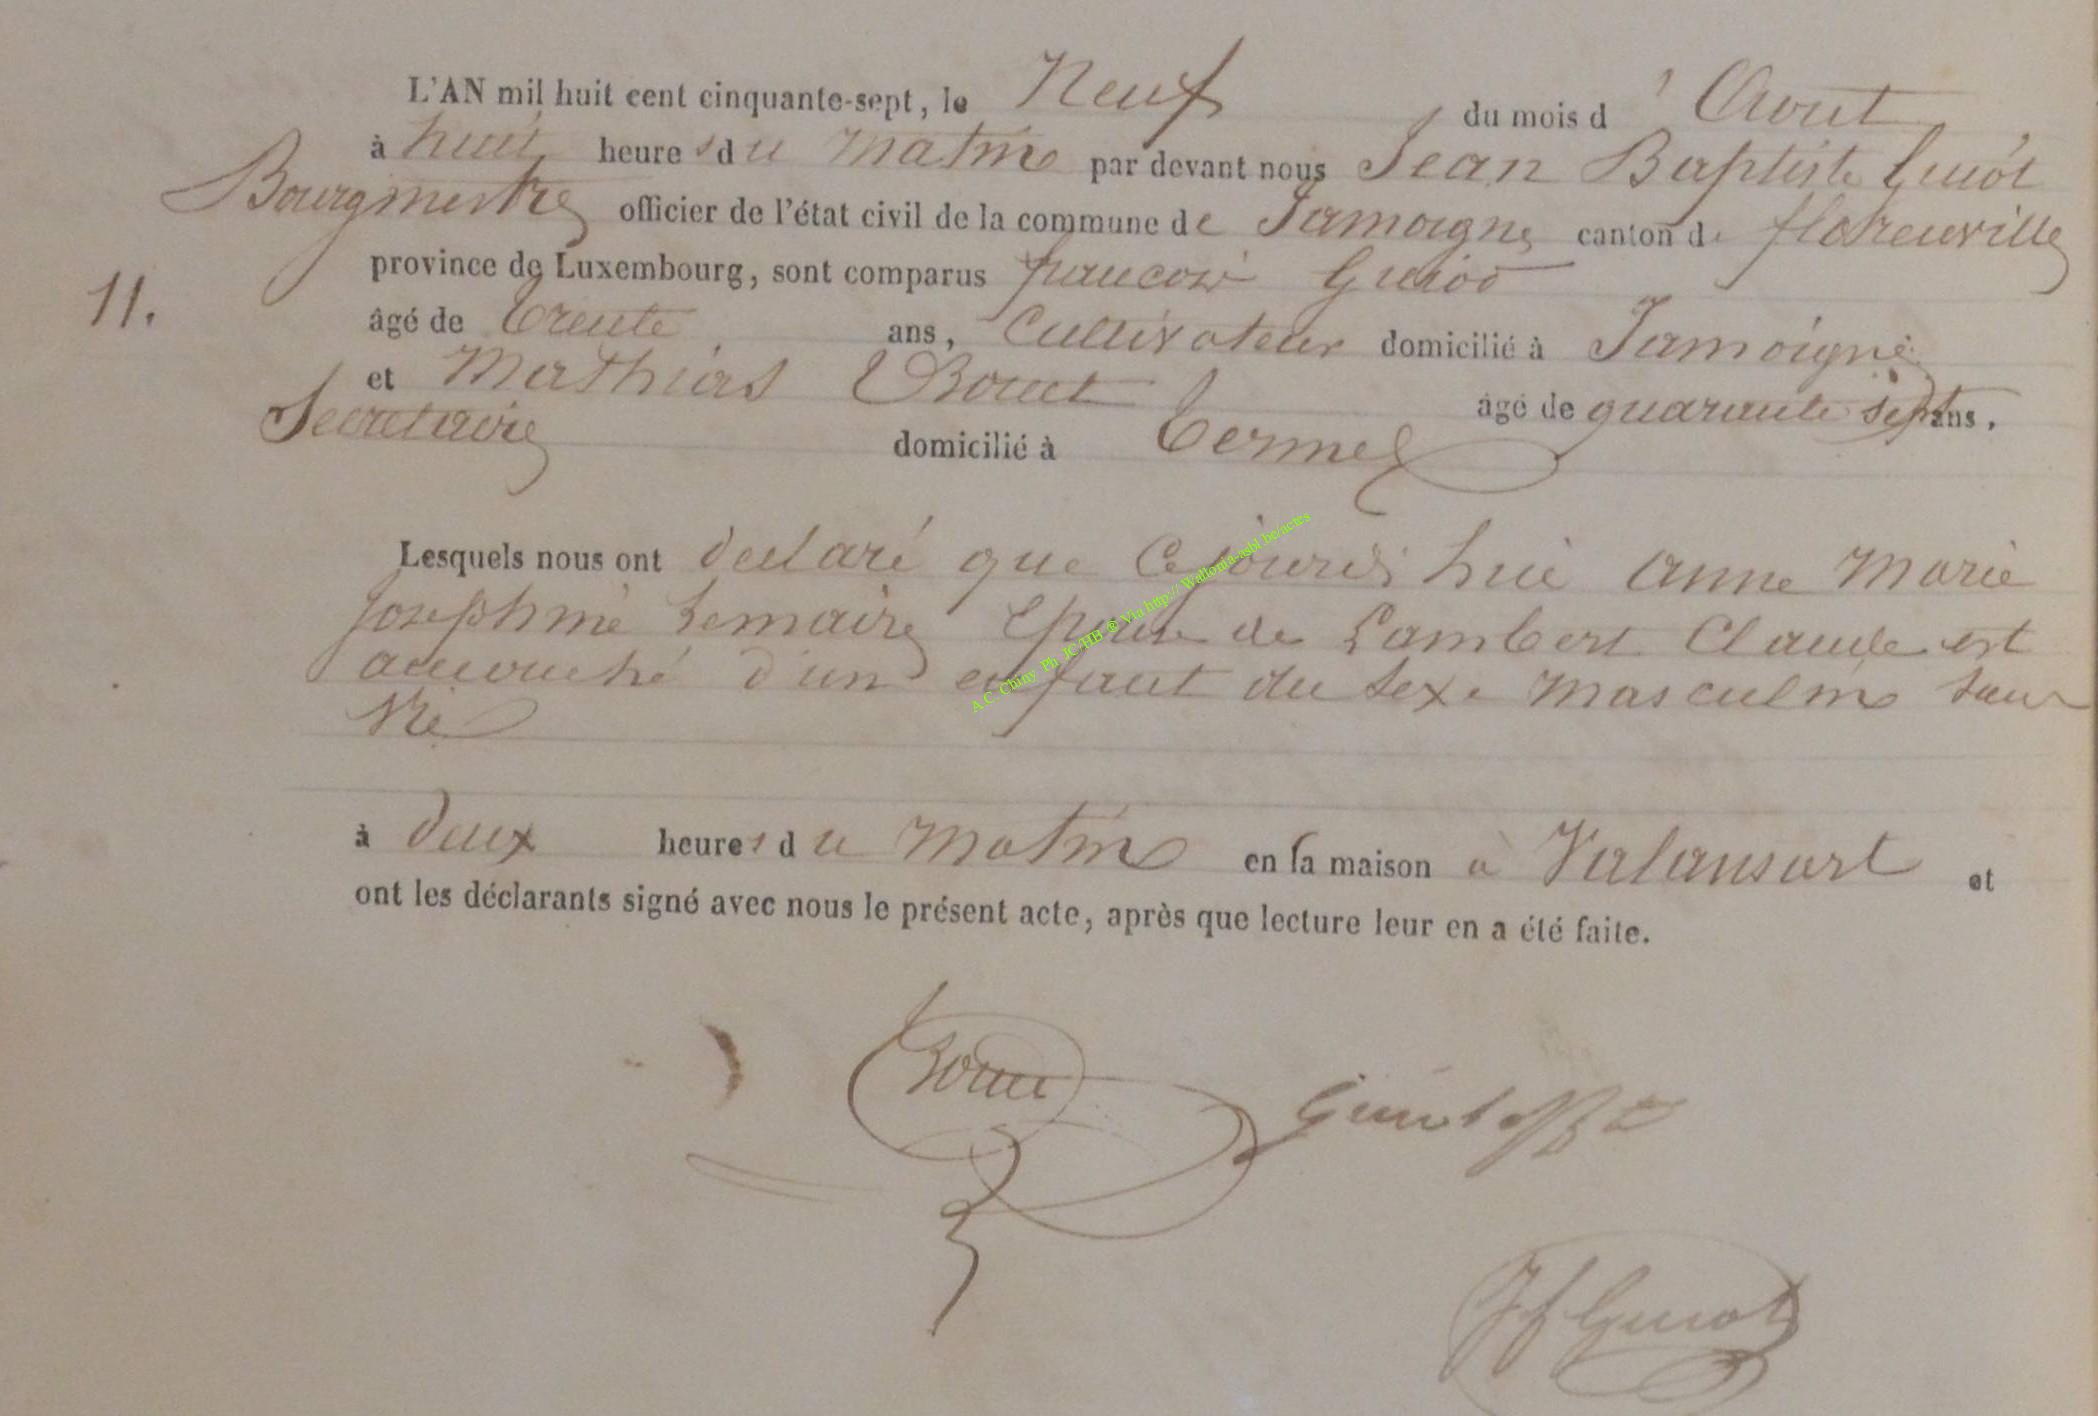 L'AN mil huit cent cinquante-sept, le Neuf du mois d'Aout
à huit heures du matin par devant nous Jean Baptiste Guiot
Bourgmestre officier de l'état civil de la commune de Jamoigne canton de florenville
province de Luxembourg, sont comparus francois Guiot
11.
âgé de trente ans, Cultivateur domicilié à Jamoigne
et Mathias Bouet âgé de quarante sept ans,
Secretaire domicilié à termes
Lesquels nous ont declaré que Cejourd'hui anne Marie
josephine Lemaire Epouse de Lambert Claude est
accouché d'un enfant du sexe masculin sans
vie
à deux heures du matin en sa maison à Valansart et
ont les déclarants signé avec nous le présent acte, après que lecture leur en a été faite.
Bouet Guiot
JfGuiot
A.C. Chiny Ph JC/HB ® Via http:// Wallonia-asbl be/actes